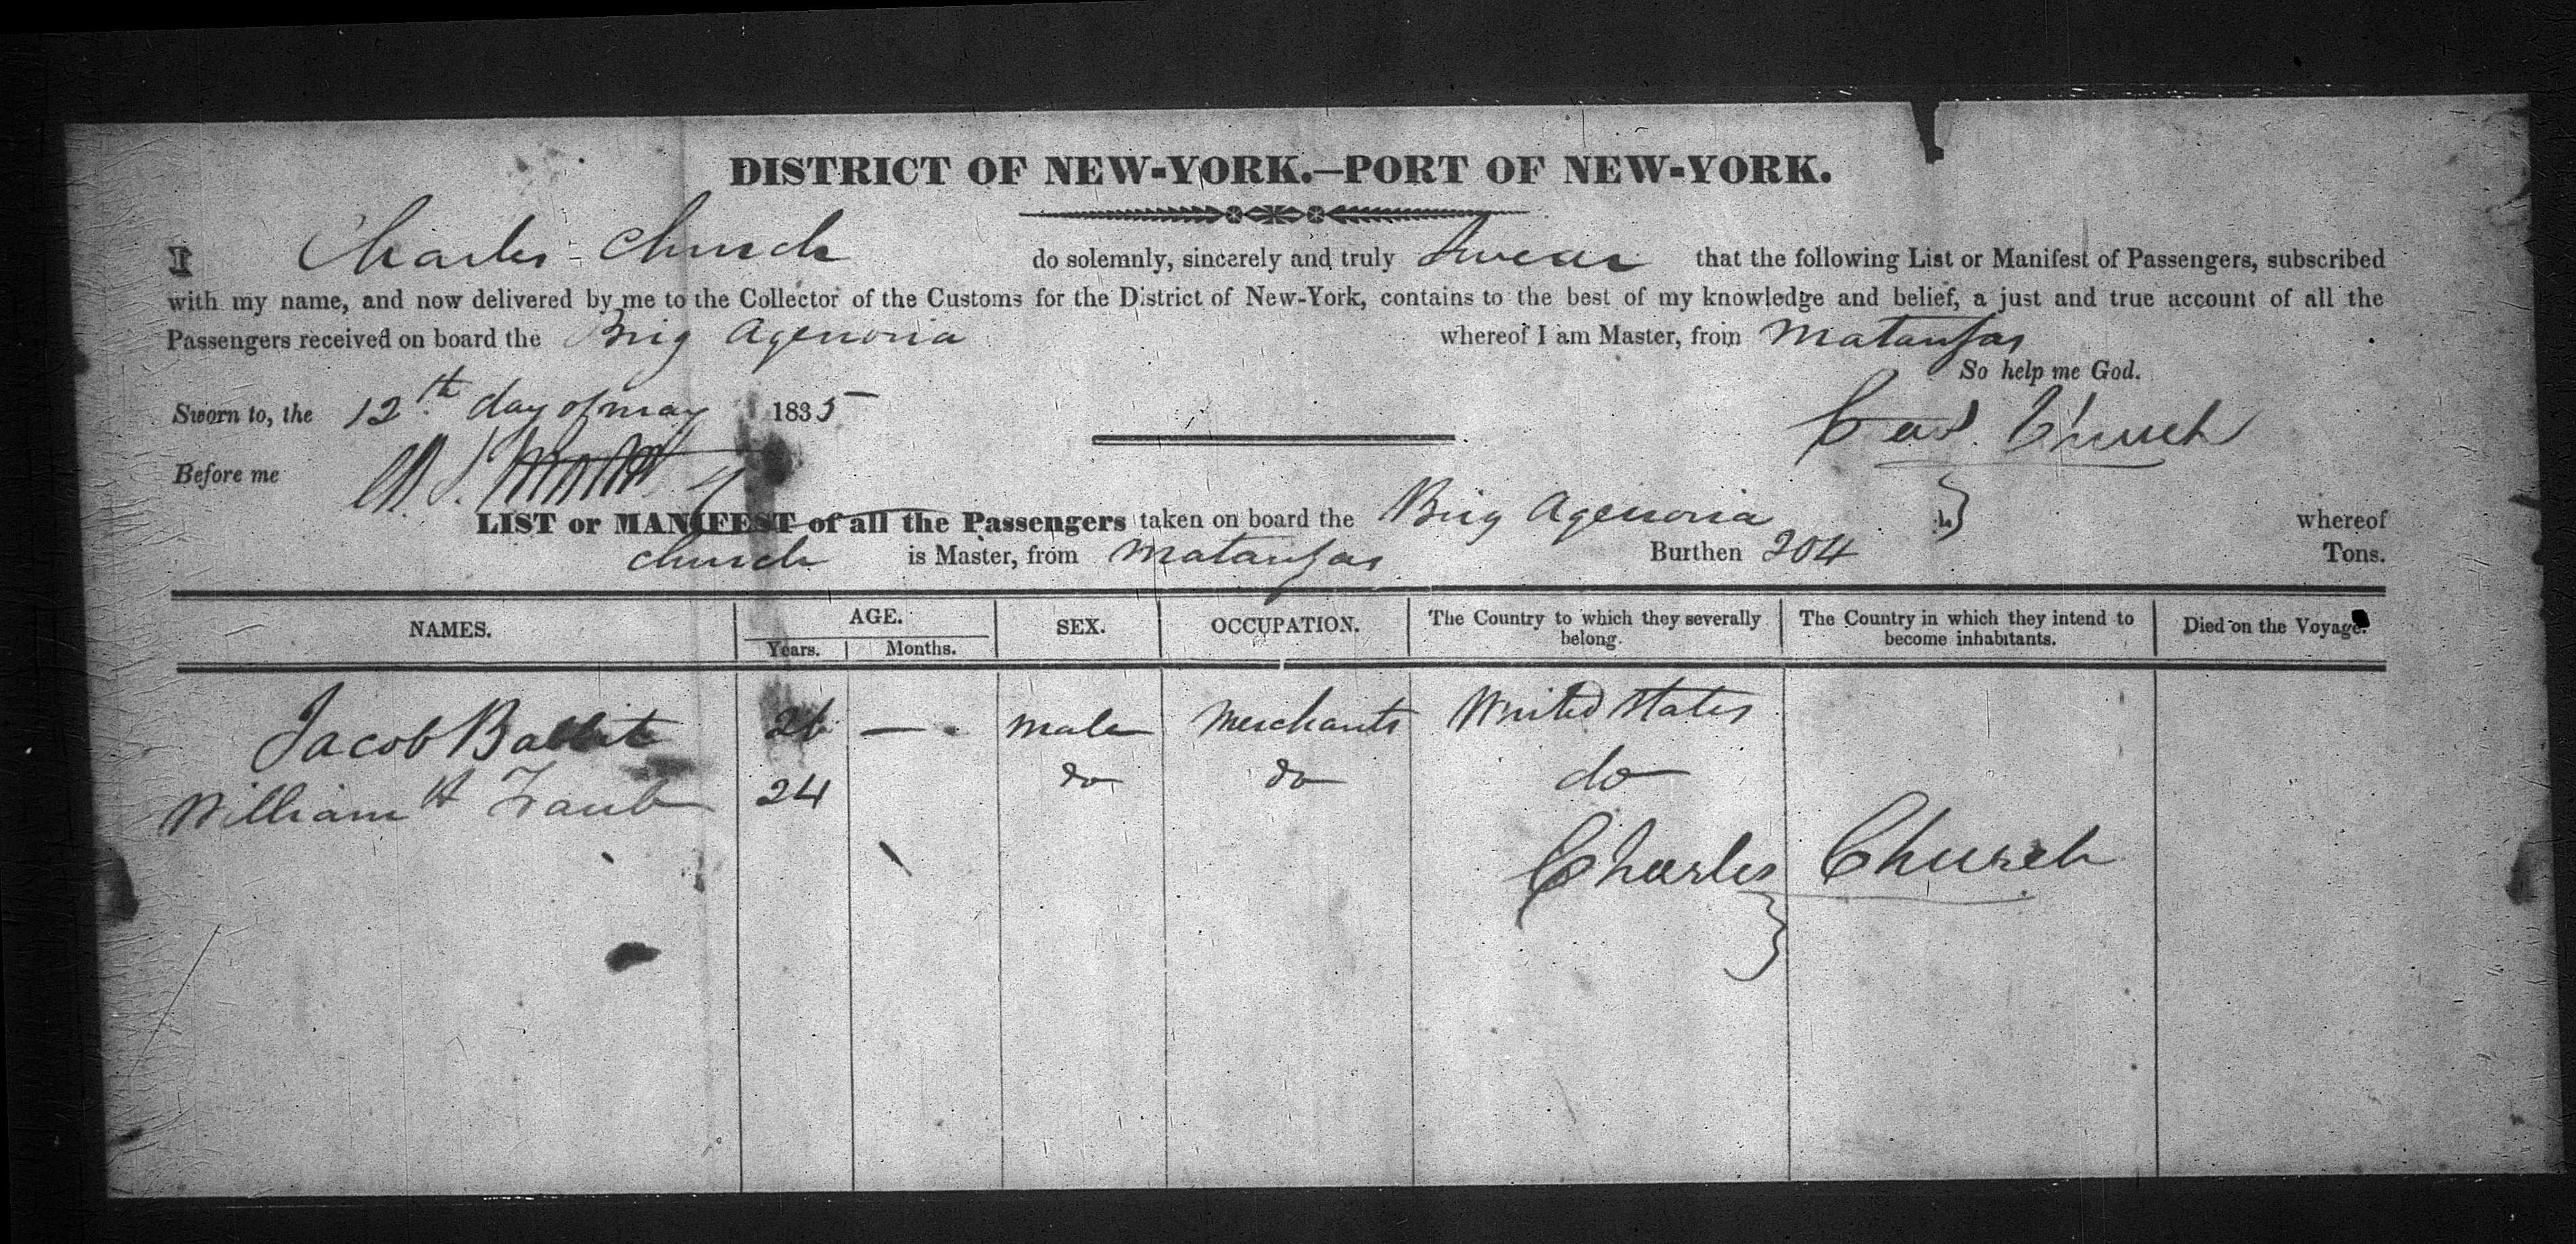 DISTRICT OF NEW-YORK.—PORT OF NEW-YORK.
I Charles Church do solemnly, sincerely and truly Swear that the following List or Manifest of Passengers, subscribed
with my name, and now delivered by me to the Collector of the Customs for the District of New-York, contains to the best of my knowledge and belief, a just and true account of all the
Passengers received on board the Brig Agenoria whereof I am Master, from Matanzas
So help me God.
Sworn to, the 12th day of may 1835
Chas. Church
Before me
LIST or MANIFEST of all the Passengers taken on board the Brig Agenoria whereof
church is Master, from Matanzas Burthen 204 Tons.
NAMES. AGE. SEX. OCCUPATION. The Country to which they severally belong. The Country in which they intend to become inhabitants. Died on the Voyage.
Years. Months.
Jacob 26 — male Merchants United States
William H 24 do do do
Charles Church